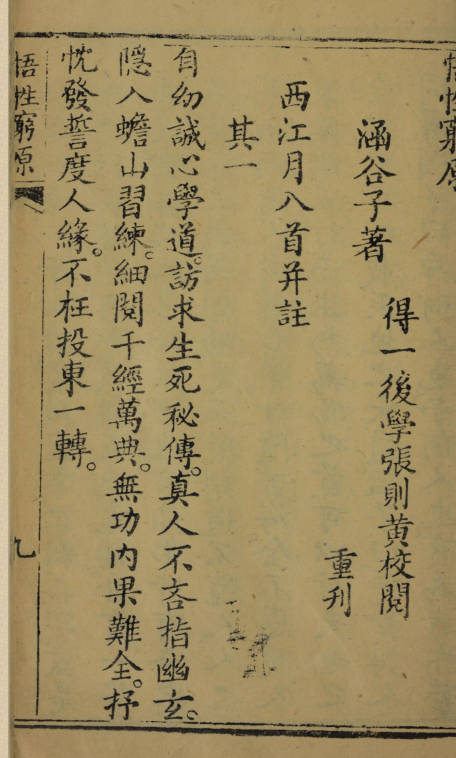 悟性窮原
涵谷子著
得一後學張則黃校閱
重刋
西江月八首并註
其一
自幼誠心學道。訪求生死秘傳。真人不吝指幽玄。
隱入蟾山習練。細閱千經萬典。無功內果難全。抒
忱發誓度人緣。不枉投東一轉。
悟性窮原
九